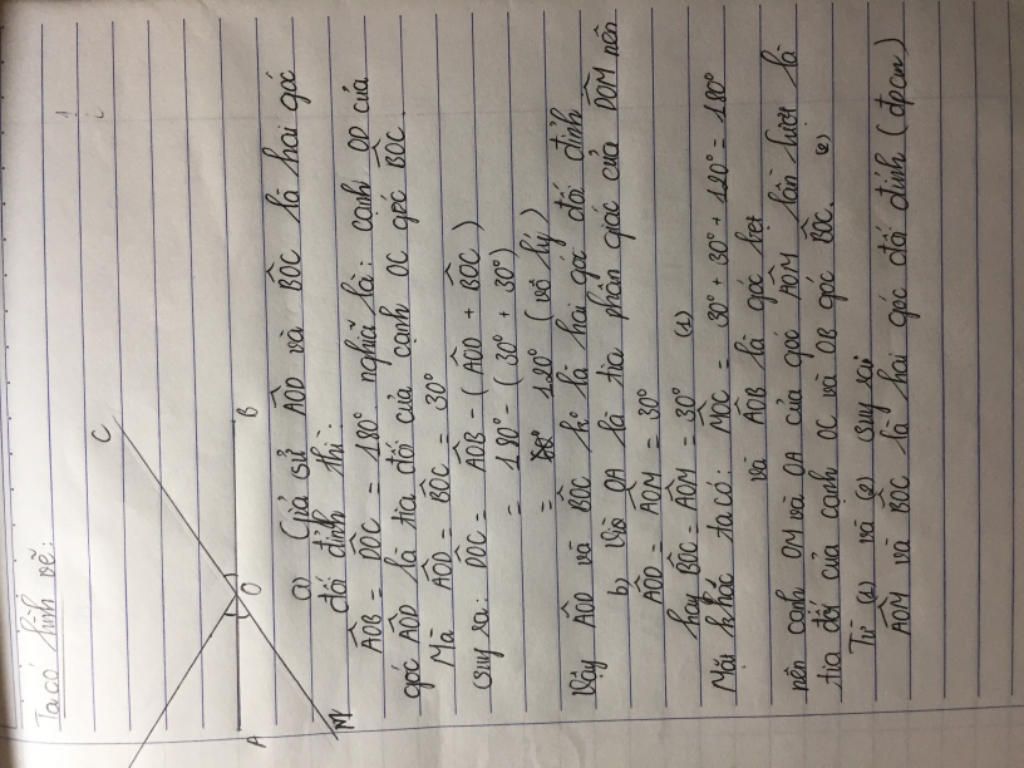 Ta có hình vẽ:
C
A
O
B
M
a) Giả sử AÔD và BÔC là hai góc
đối đỉnh thì:
AÔB = DÔC = 180° nghĩa là: cạnh OD của
góc AÔD là tia đối của cạnh OC góc BÔC.
Mà AÔD = BÔC = 30°
Suy ra: DÔC = AÔB - (AÔD + BÔC)
= 180° - (30° + 30°)
= 120° (vô lý)
Vậy AÔD và BÔC k là hai góc đối đỉnh
b) Vì OA là tia phân giác của DÔM nên
AÔD = AÔM = 30°
hay BÔC = AÔM = 30° (1)
Mặt khác ta có: MÔC = 30° + 30° + 120° = 180°
và AÔB là góc bẹt
nên cạnh OM và OA của góc AÔM lần lượt là
tia đối của cạnh OC và OB góc BÔC. (2)
Từ (1) và (2) suy ra
AÔM và BÔC là hai góc đối đỉnh (đpcm)